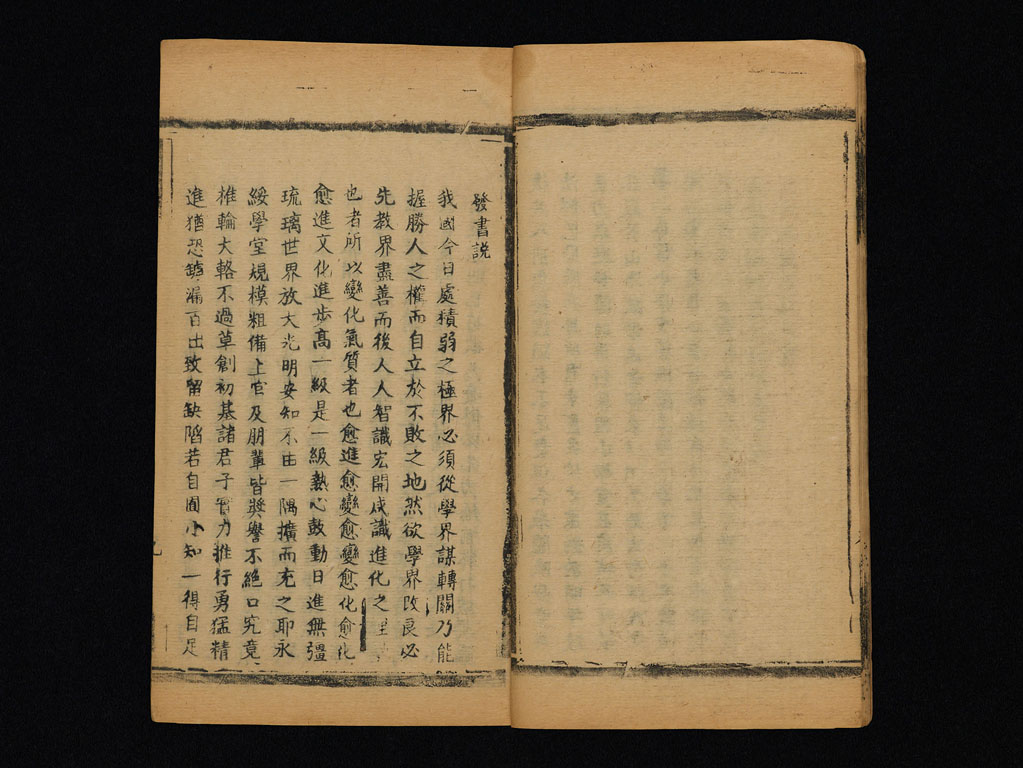 發書說
我國今日處積弱之極界必須從學界謀轉關乃能
握勝人之權而自立於不敗之地然欲學界改良必
先教界盡善而後人人智識宏開成識進化之
也者所以變化氣質者也愈進愈變愈變愈化愈化
愈進文化進步高一級是一級熱心鼓動日進無彊
琉璃世界放大光明安知不由一隅擴而充之耶永
綏學室規模粗備上官及朋輩皆獎譽不絕口究竟
椎輪大輅不過草創初基諸君子力推行勇猛精
進猶恐罅漏百出致留缺陷若自囿小知一得自足